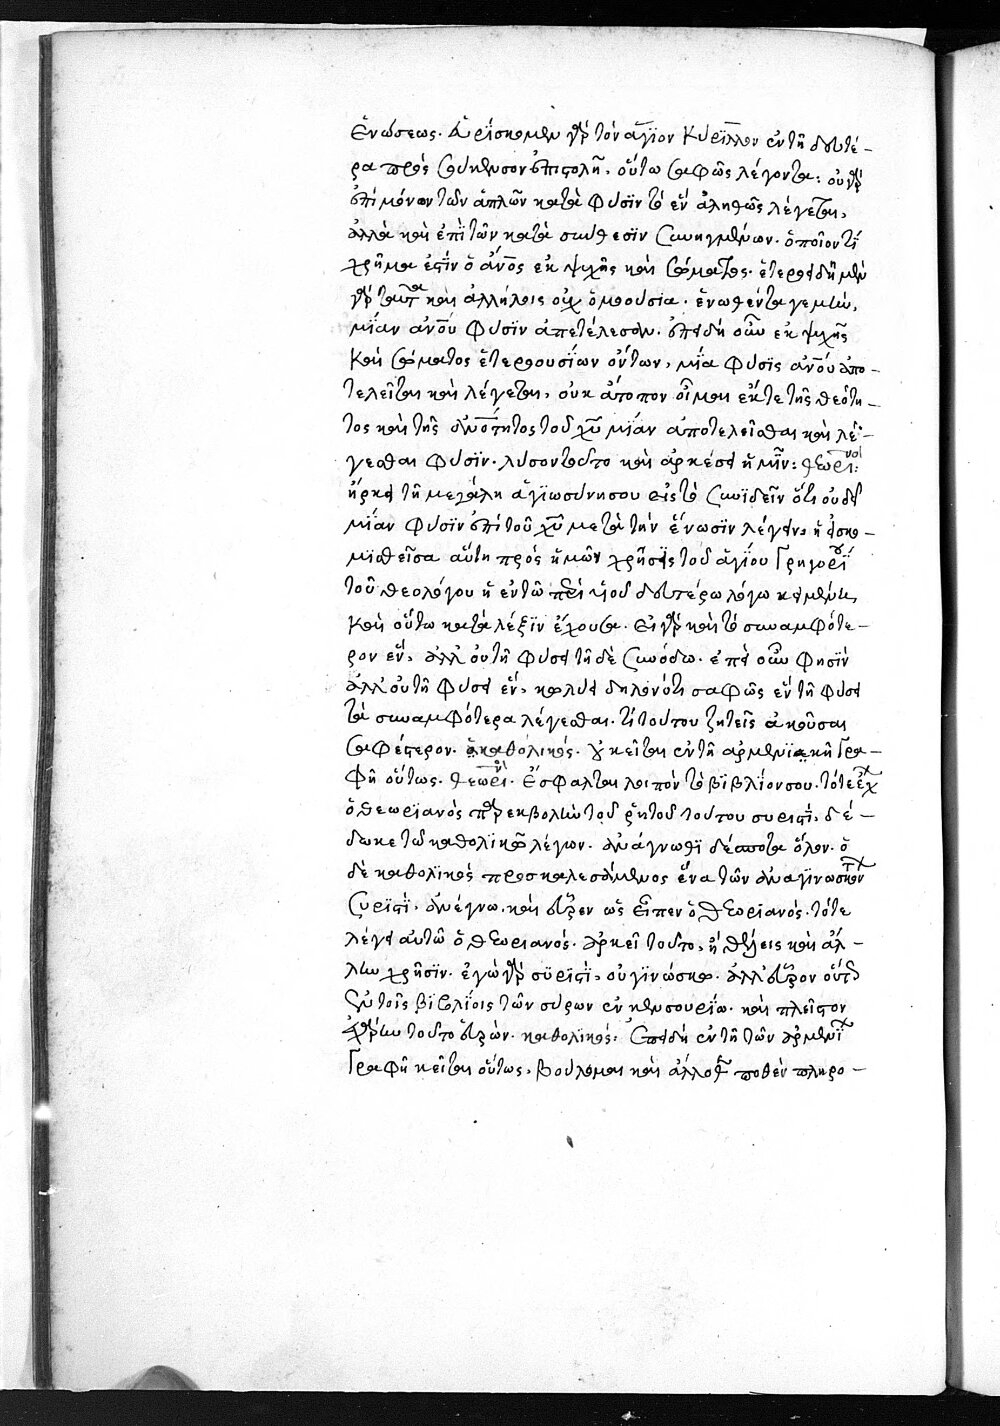 ἑνώσεως. εὑρίσκομεν γὰρ τὸν ἅγϊον Κύρϊλλον ἐν τῆ δευτέ-
ρα πρὸς σούκενσον ἐπιστολῆ, οὕτω σαφῶς λέγοντα: οὐ γὰρ
ἐπὶ μόνων τῶν ἁπλῶν κατὰ φύσϊν τὸ ἓν ἀληθῶς λέγεται,
ἀλλὰ καὶ ἐπὶ τῶν κατὰ σύνθεσϊν συνηγμένων. ὁποῖόν τί
χρῆμα ἐστὶν ὁ ἄνος ἐκ ψυχῆς καὶ σώματος. ἑτεροειδῆ μὲν
γὰρ ταῦτα καὶ ἀλλήλοις οὐχ ὁμοούσια. ἑνωθέντα γε μὴν,
μΐαν ἀνου φύσϊν ἀπετέλεσαν. ἐπειδὴ οὖν ἐκ ψυχῆς
καὶ σώματος ἑτεροουσίων ὄντων, μία φύσϊς ἀνου ἀπο-
τελεῖται καὶ λέγεται, οὐκ ἄτοπον οἶμαι ἔκ τε τῆς θεότη-
τος καὶ τῆς ἀνότητος τοῦ χυ μΐαν ἀποτελεῖσθαι καὶ λέ-
γεσθαι φύσϊν. λῦσον τοῦτο καὶ ἀρκέσει ἡμῖν: θεωρι:
ἤρκει τῆ μεγάλη ἁγϊωσύνη σου εἰς τὸ συνϊδεῖν ὅτι οὐ δεῖ
μΐαν φύσϊν ἐπὶ τοῦ χυ μετὰ τὴν ἕνωσϊν λέγειν, ἡ εἰσκο-
μϊσθεῖσα αὕτη πρὸς ἡμῶν χρῆσϊς τοῦ ἁγΐου Γρηγορΐου
τοῦ θεολόγου ἡ ἐν τῶ περὶ υἱοῦ δευτέρω λόγω κειμένη,
καὶ οὕτω κατὰ λέξϊν ἔχουσα. εἰ γὰρ καὶ τὸ συναμφότε-
ρον ἓν, ἀλλ' οὐ τῆ φύσει τῆ δὲ συνόδω. ἐπεὶ οὖν φησὶν
ἀλλ' οὐ τῆ φύσει ἓν, κωλύει δηλονότι σαφῶς ἓν τῆ φύσει
τὰ συναμφότερα λέγεσθαι. τί τούτου ζητεῖς ἀκοῦσαι
σαφέστερον. ὁ καθολικός. οὐ κεῖται ἐν τῆ ἀρμενϊακῆ γρα-
φῆ οὕτως. θεωρι. ἔσφαλται λοιπὸν τὸ βϊβλίον σου. τότε
ὁ θεωρϊανὸς παρεκβολὴν τοῦ ῥητοῦ τούτου συριστὶ, δέ-
δωκε τῶ καθολϊκῶ λέγων. ἀνάγνωθϊ δέσποτα ὅλον. ὁ
δὲ καθολϊκὸς προσκαλεσάμενος ἕνα τῶν ἀναγϊνωσκόντων
συρϊστὶ, ἀνέγνω, καὶ εὗρεν ὡς εἶπεν ὁ θεωριανός. τότε
λέγει αὐτῶ ὁ θεωριανὸς. ἀρκεῖ τοῦτο, ἢ θέλεις καὶ ἄλ-
λην χρῆσϊν. ἐγὼ γὰρ συρϊστὶ, οὐ γϊνώσκω. ἀλλ' εὗρον
ἐν τοῖς βϊβλΐοις τῶν σύρων ἐν κενσουρίω. καὶ πλεῖστον
ἐχάρην τοῦτο εὑρών. καθολϊκός: ἐπειδὴ ἐν τῆ τῶν ἀρμενΐων
γραφῆ κεῖται οὕτως, βούλομαι καὶ ἄλλοθέν ποθεν πληρο-